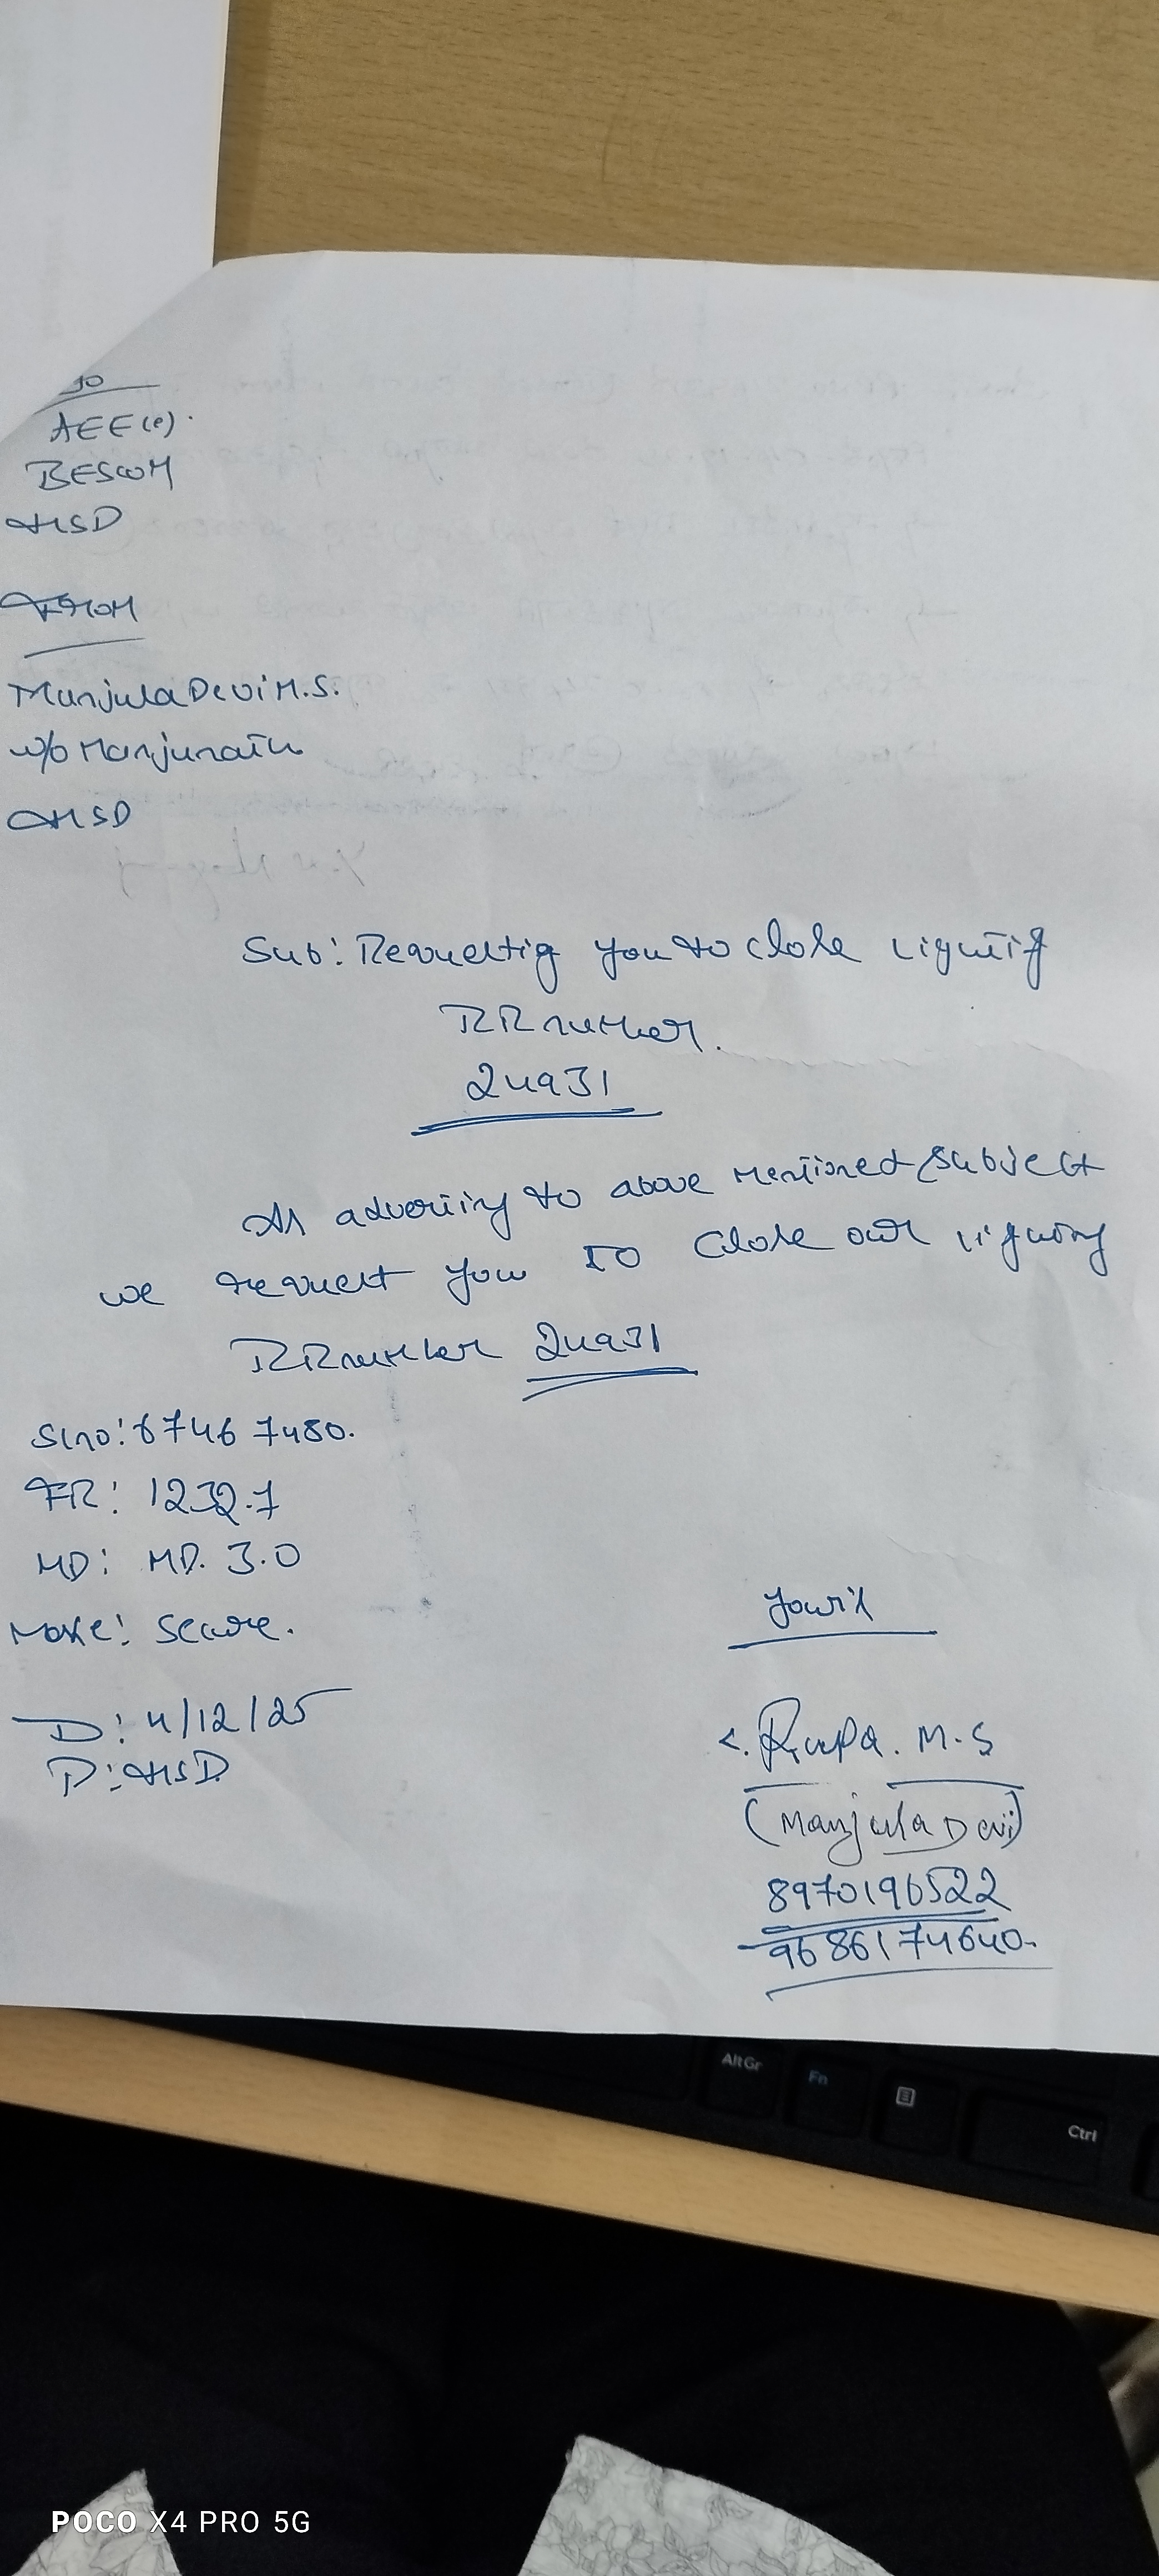 To
AEE(e).
BESCOM
HSD
From
Manjula Devi M.S.
w/o Manjunath
HSD
Sub: Requestig you to close lightig
RR number.
24931
As adveriing to above mentioned subject
we request you to close our lighting
RR number 24931
Slno: 67467480.
FR: 1232.7
MD: MD. 3.0
Make: Secure.
D: 4/12/25
P: HSD
Your's
Rupa. M.S
(Manjula Devi)
8970196522
9686174640.
AltGr
Fn
Ctrl
POCO X4 PRO 5G